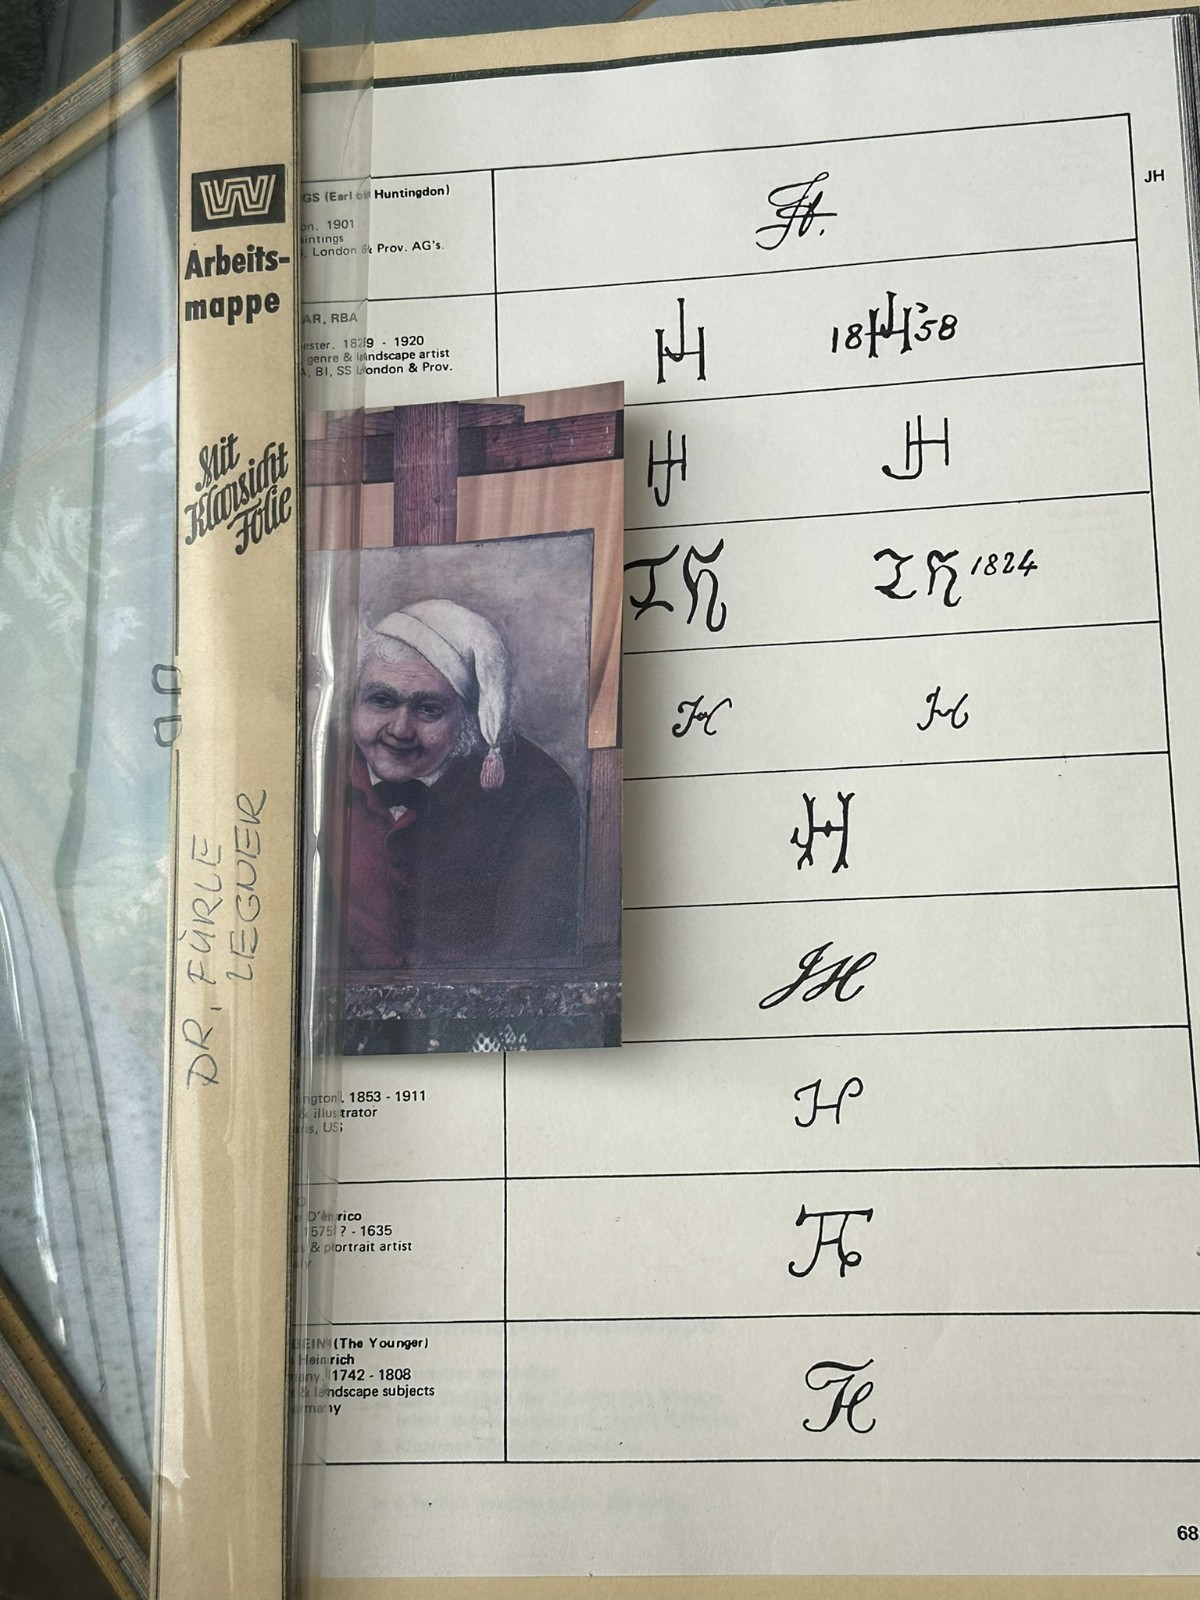 Arbeits-
mappe
Mit
Klarsicht
Folie
DR. FÜRLE
LEGNER
JH
GS (Earl of Huntingdon)
on. 1901
aintings
London & Prov. AG's.
AR, RBA
ester. 1829 - 1920
genre & landscape artist
BI, SS London & Prov.
JH
18 JH 58
JH
JH
IH
IH 1824
JH
JH
JH
JH
ngton. 1853 - 1911
& illustrator
JH
D'énrico
1575? - 1635
& portrait artist
BEIN (The Younger)
Heinrich
many 1742 - 1808
& landscape subjects
ermany
JH
68